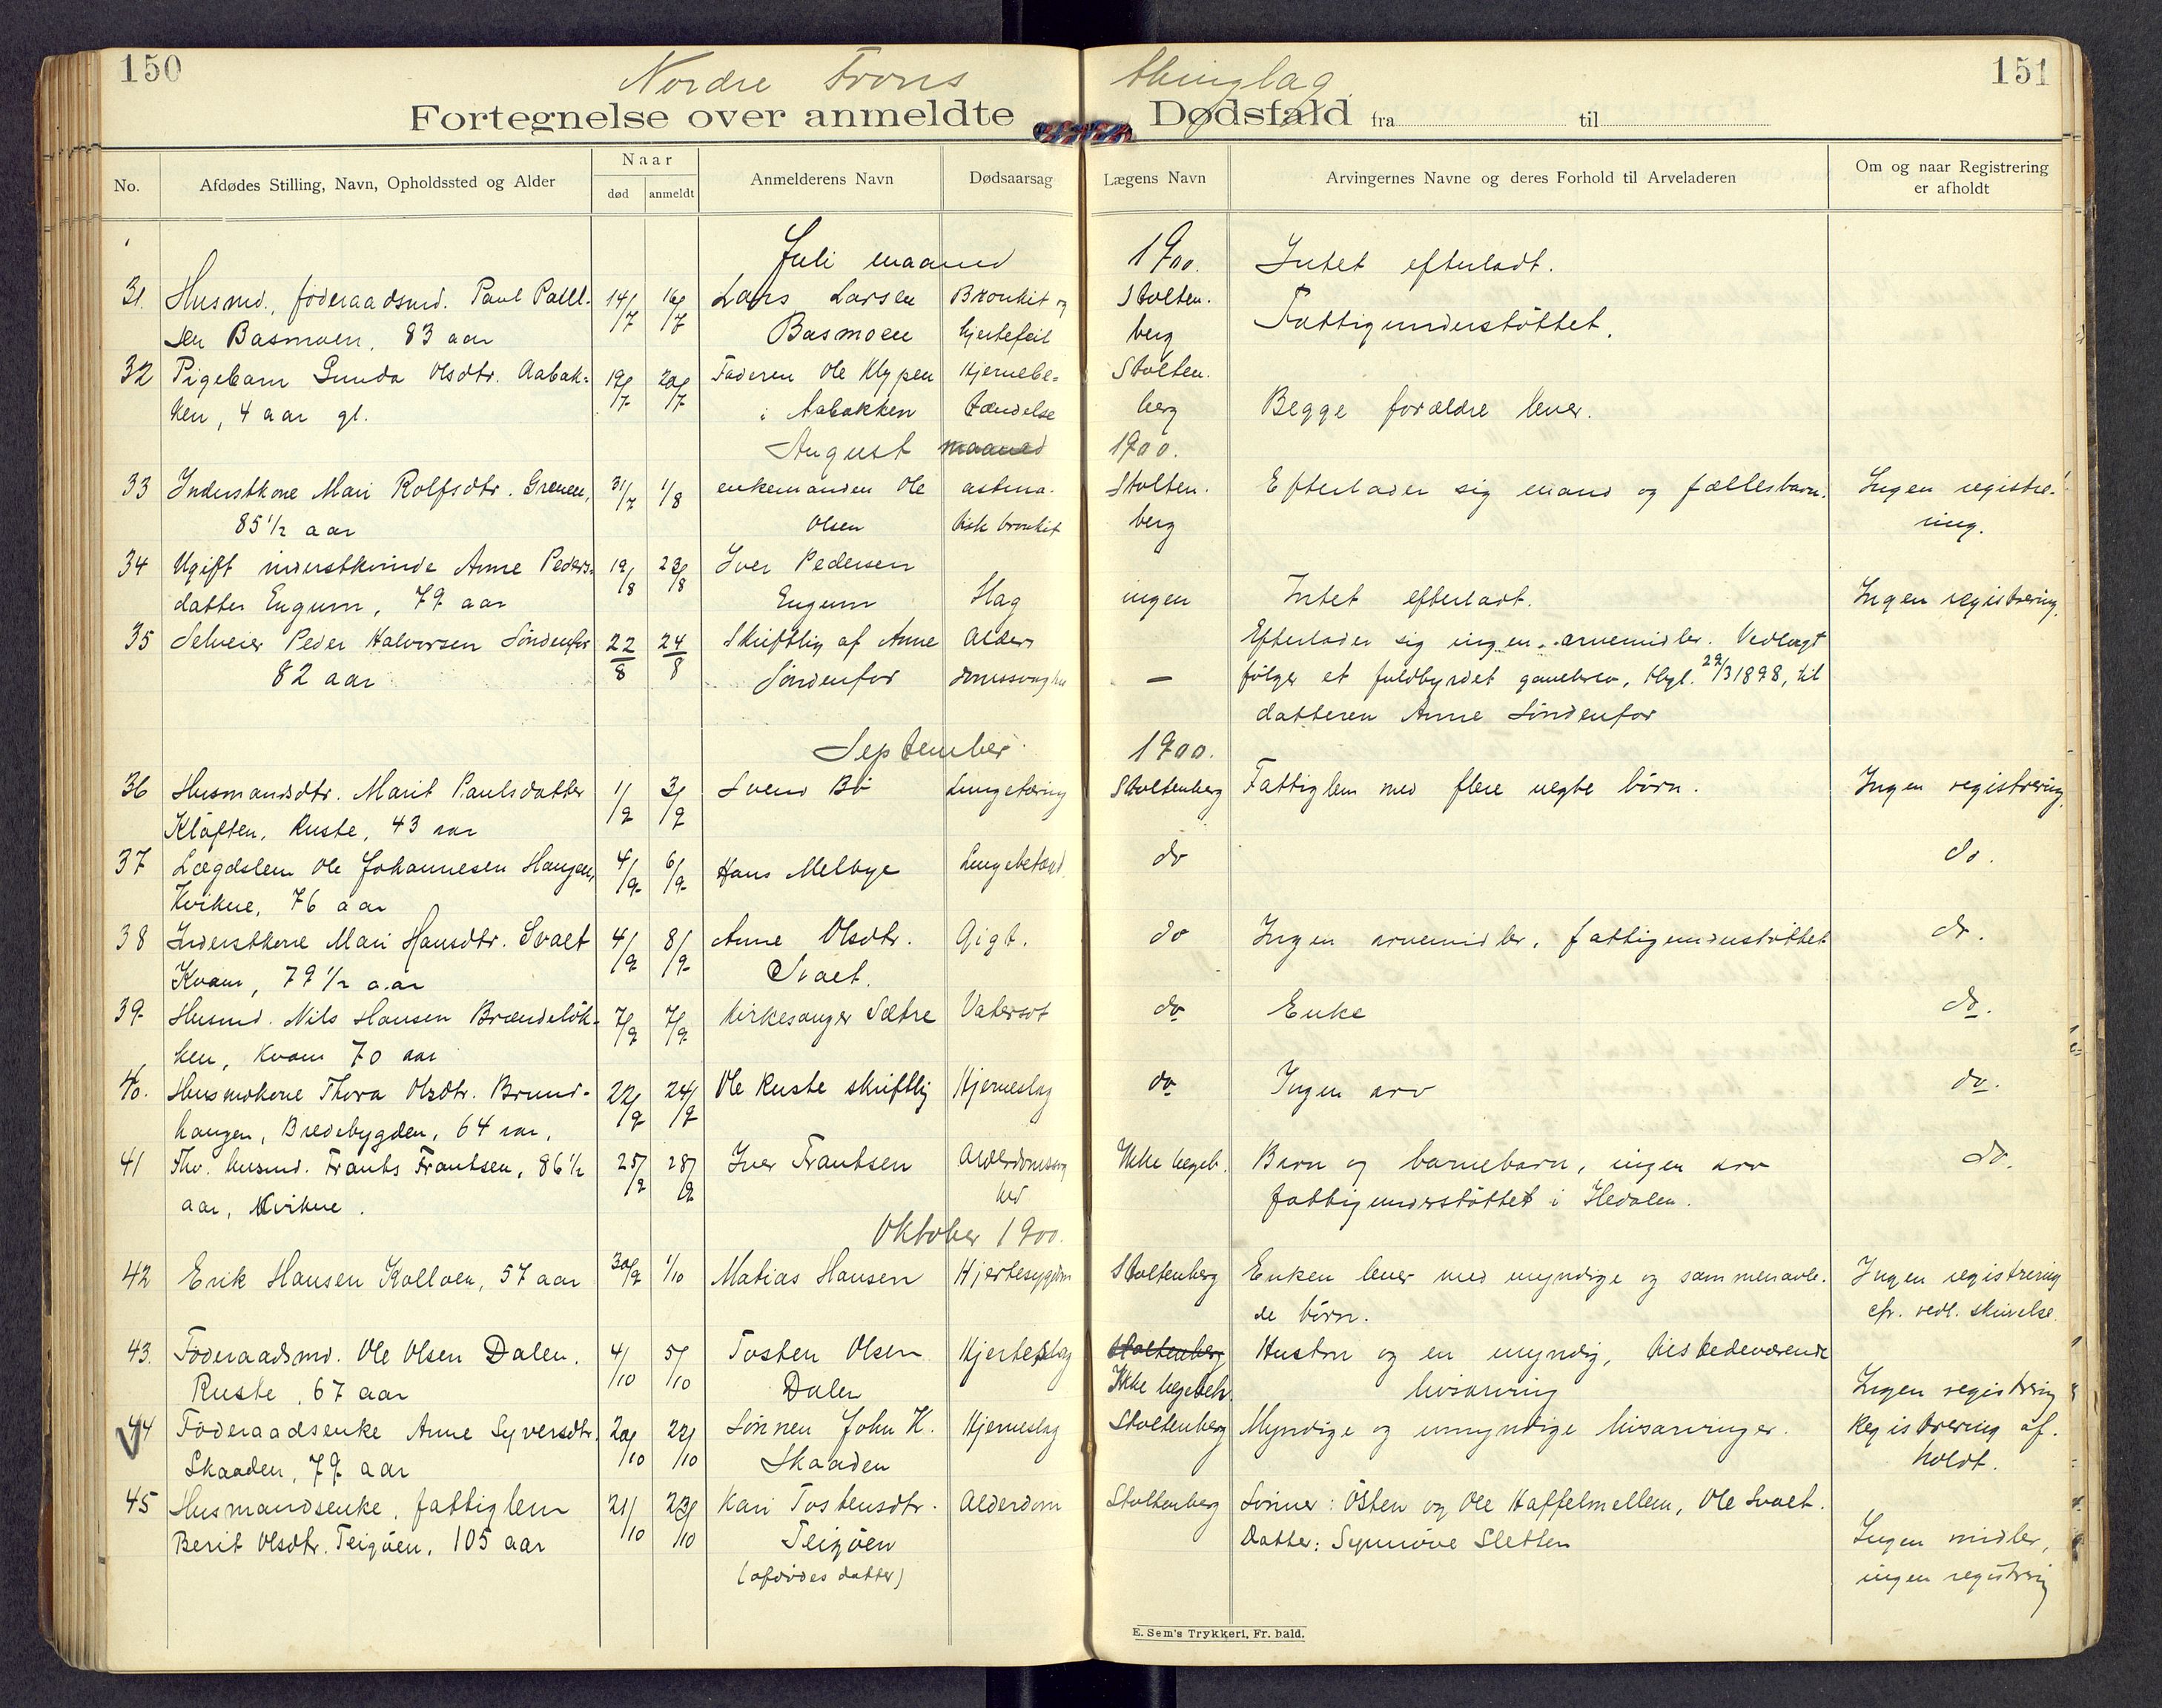 150
Nordre Frons thinglag.
151
Fortegnelse over anmeldte Dødsfald fra til
No.
Afdødes Stilling, Navn, Opholdssted og Alder
Naar
død
anmeldt
Anmelderens Navn
Dødsaarsag
Lægens Navn
Arvingernes Navne og deres Forhold til Arveladeren
Om og naar Registrering
er afholdt
Juli maaned 1900.
Intet efterladt.
31. Husmd., føderaadsmd. Paul Paul- 14/7 16/7 Lars Larsen Bronkit og Stolten-
sen Basmoen, 83 aar Basmoen hjertefeil berg Fattigunderstøttet.
32 Pigebarn Gunda Olsdtr. Aabak- 19/7 20/7 Faderen Ole Klypen Hjernebe- Stolten-
ken, 4 aar gl. i Aabakken tændelse berg Begge forældre lever.
August maaned 1900.
33 Inderstkone Mari Rolfsdtr. Grenen, 31/7 1/8 enkemanden Ole astma- Stolten- Efterlader sig mand og fællesbarn. Ingen registre-
85 1/2 aar Olsen tisk bronkit berg ring.
34 Ugift inderstkvinde Anne Peders- 19/8 23/8 Iver Pedersen
datter Engum, 79 aar Engum Slag ingen Intet efterladt. Ingen registrering.
35 Selveier Peder Halvorsen Søndenfor 22/8 24/8 Skriftlig af Anne Alder- Efterlader sig ingen arvemidler. Vedlagt
82 aar Søndenfor domssvaghed — følger et fuldbyrdet gavebrev, thgl. 29/3 1898, til
datteren Anne Søndenfor
September 1900.
36 Husmandsdtr. Marit Paulsdatter 1/9 3/9 Svend Bø Lungetæring Stoltenberg Fattiglem med flere uegte børn. Ingen registrering.
Kløften, Ruste, 43 aar
37 Lægdslem Ole Johannesen Haugen, 4/9 6/9 Hans Melbye Lungebetænd. do do.
Kvikne, 76 aar
38 Inderstkone Mari Hansdtr. Svaet 4/9 8/9 Anne Olsdtr. Gigt. do Ingen arvemidler, fattigunderstøttet do.
Kvam, 79 1/2 aar Svaet.
39 Husmd. Nils Hansen Brændeløk- 7/9 7/9 Kirkesanger Sætre Vatersot do Enke do.
ken, Kvam 70 aar
40. Husmdkone Thora Olsdtr. Brund- 22/9 24/9 Ole Ruste skriftlig Hjerneslag do Ingen arv do.
haugen, Bredebygden, 64 aar,
41 Fhv. husmd. Frants Frantsen, 86 1/2 25/9 28/9 Iver Frantsen Alderdomssvag- Ikke lægeb. Barn og barnebarn, ingen arv do.
aar, Kvikne. hed fattigunderstøttet i Hedalen.
Oktober 1900.
42 Erik Hansen Kolloen, 57 aar 30/9 1/10 Matias Hansen Hjertesygdom Stoltenberg Enken lever med myndige og sammenavle- Ingen registrering
de børn. cfr. vedl. skrivelse
43. Føderaadsmd. Ole Olsen Dalen, 4/10 5/10 Tosten Olsen Hjerteslag Stoltenberg Hustru og en myndig, tilstedeværende
Ruste, 67 aar Dalen Ikke lægebeh. livsarving Ingen registrering
44 Føderaadsenke Anne Syversdtr. 20/10 22/10 Sønnen John K. Hjerneslag Stoltenberg Myndige og umyndige livsarvinger. Registrering af-
Skaaden, 79 aar Skaaden holdt.
45 Husmandsenke, fattiglem 21/10 23/10 Kari Tostensdtr. Alderdom Stoltenberg Sønner: Østen og Ole Haffelmellem, Ole Svaet.
Berit Olsdtr. Teigøen, 105 aar Teigøen Datter: Synnøve Sletten Ingen midler,
(afdødes datter) ingen registrering
E. Sem's Trykkeri, Fr. hald.